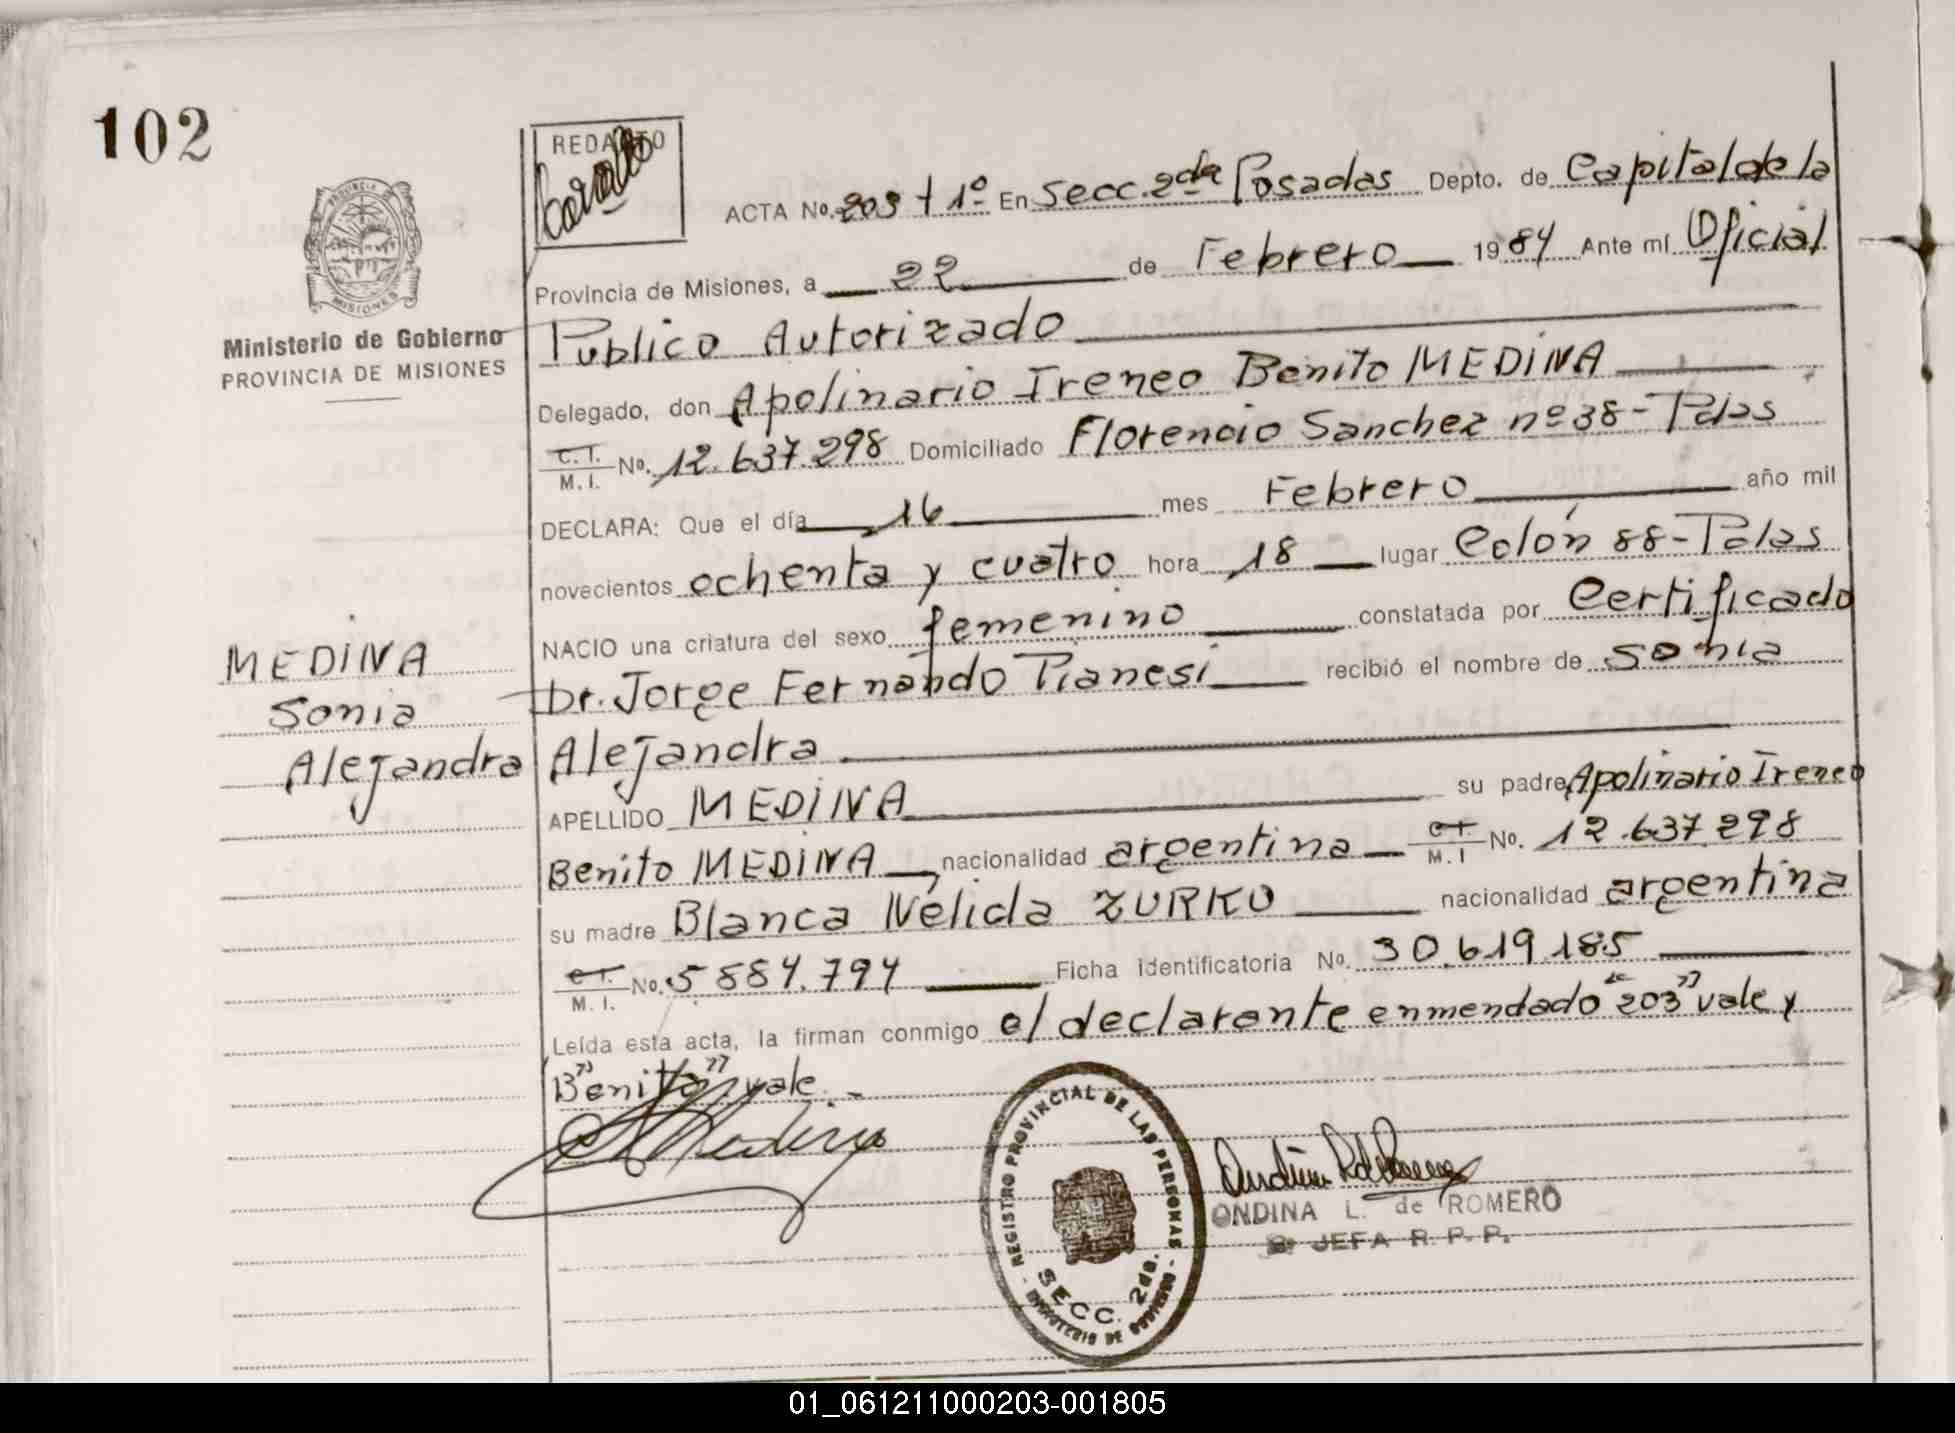 102
REDACTO
ACTA No. 203 t 1º En Secc. 2da Posadas Depto. de Capital de la
Provincia de Misiones, a 22 de Febrero 1984 Ante mí Oficial
Publico Autorizado
PROVINCIA DE MISIONES
Ministerio de Gobierno
PROVINCIA DE MISIONES
Delegado, don Apolinario Ireneo Benito MEDINA
C.I. M.I. No. 12.637.298 Domiciliado Florencio Sanchez nº 38-Pdas
DECLARA: Que el día 16 mes Febrero año mil
novecientos ochenta y cuatro hora 18 lugar Colón 88-Pdas
NACIO una criatura del sexo femenino constatada por Certificado
Dr. Jorge Fernando Pianesi recibió el nombre de Sonia
Alejandra
MEDINA
Sonia
Alejandra
APELLIDO MEDINA su padre Apolinario Ireneo
Benito MEDINA, nacionalidad argentina C.I. M.I No. 12.637.298
su madre Blanca Nélida ZURKO nacionalidad argentina
C.I. M.I. No. 5884.794 Ficha identificatoria No. 30.619.185
Leída esta acta, la firman conmigo el declarante enmendado "203" vale y
"Benito" vale.-
REGISTRO PROVINCIAL DE LAS PERSONAS - MINISTERIO DE GOBIERNO -
SECC. 2da.
ONDINA L. de ROMERO
JEFA R. P. P.
01_061211000203-001805